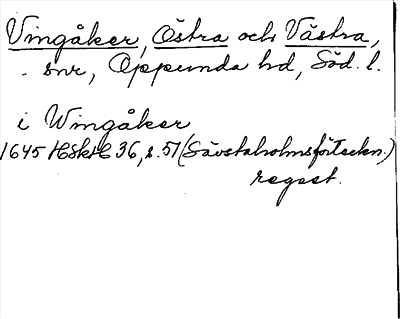 Vingåker, Östra och Västra,
snr, Oppunda hd, Söd. l.
i Wingåker
1645 HSkH 36, s. 57 (Sävstaholmsförteckn.)
regest.